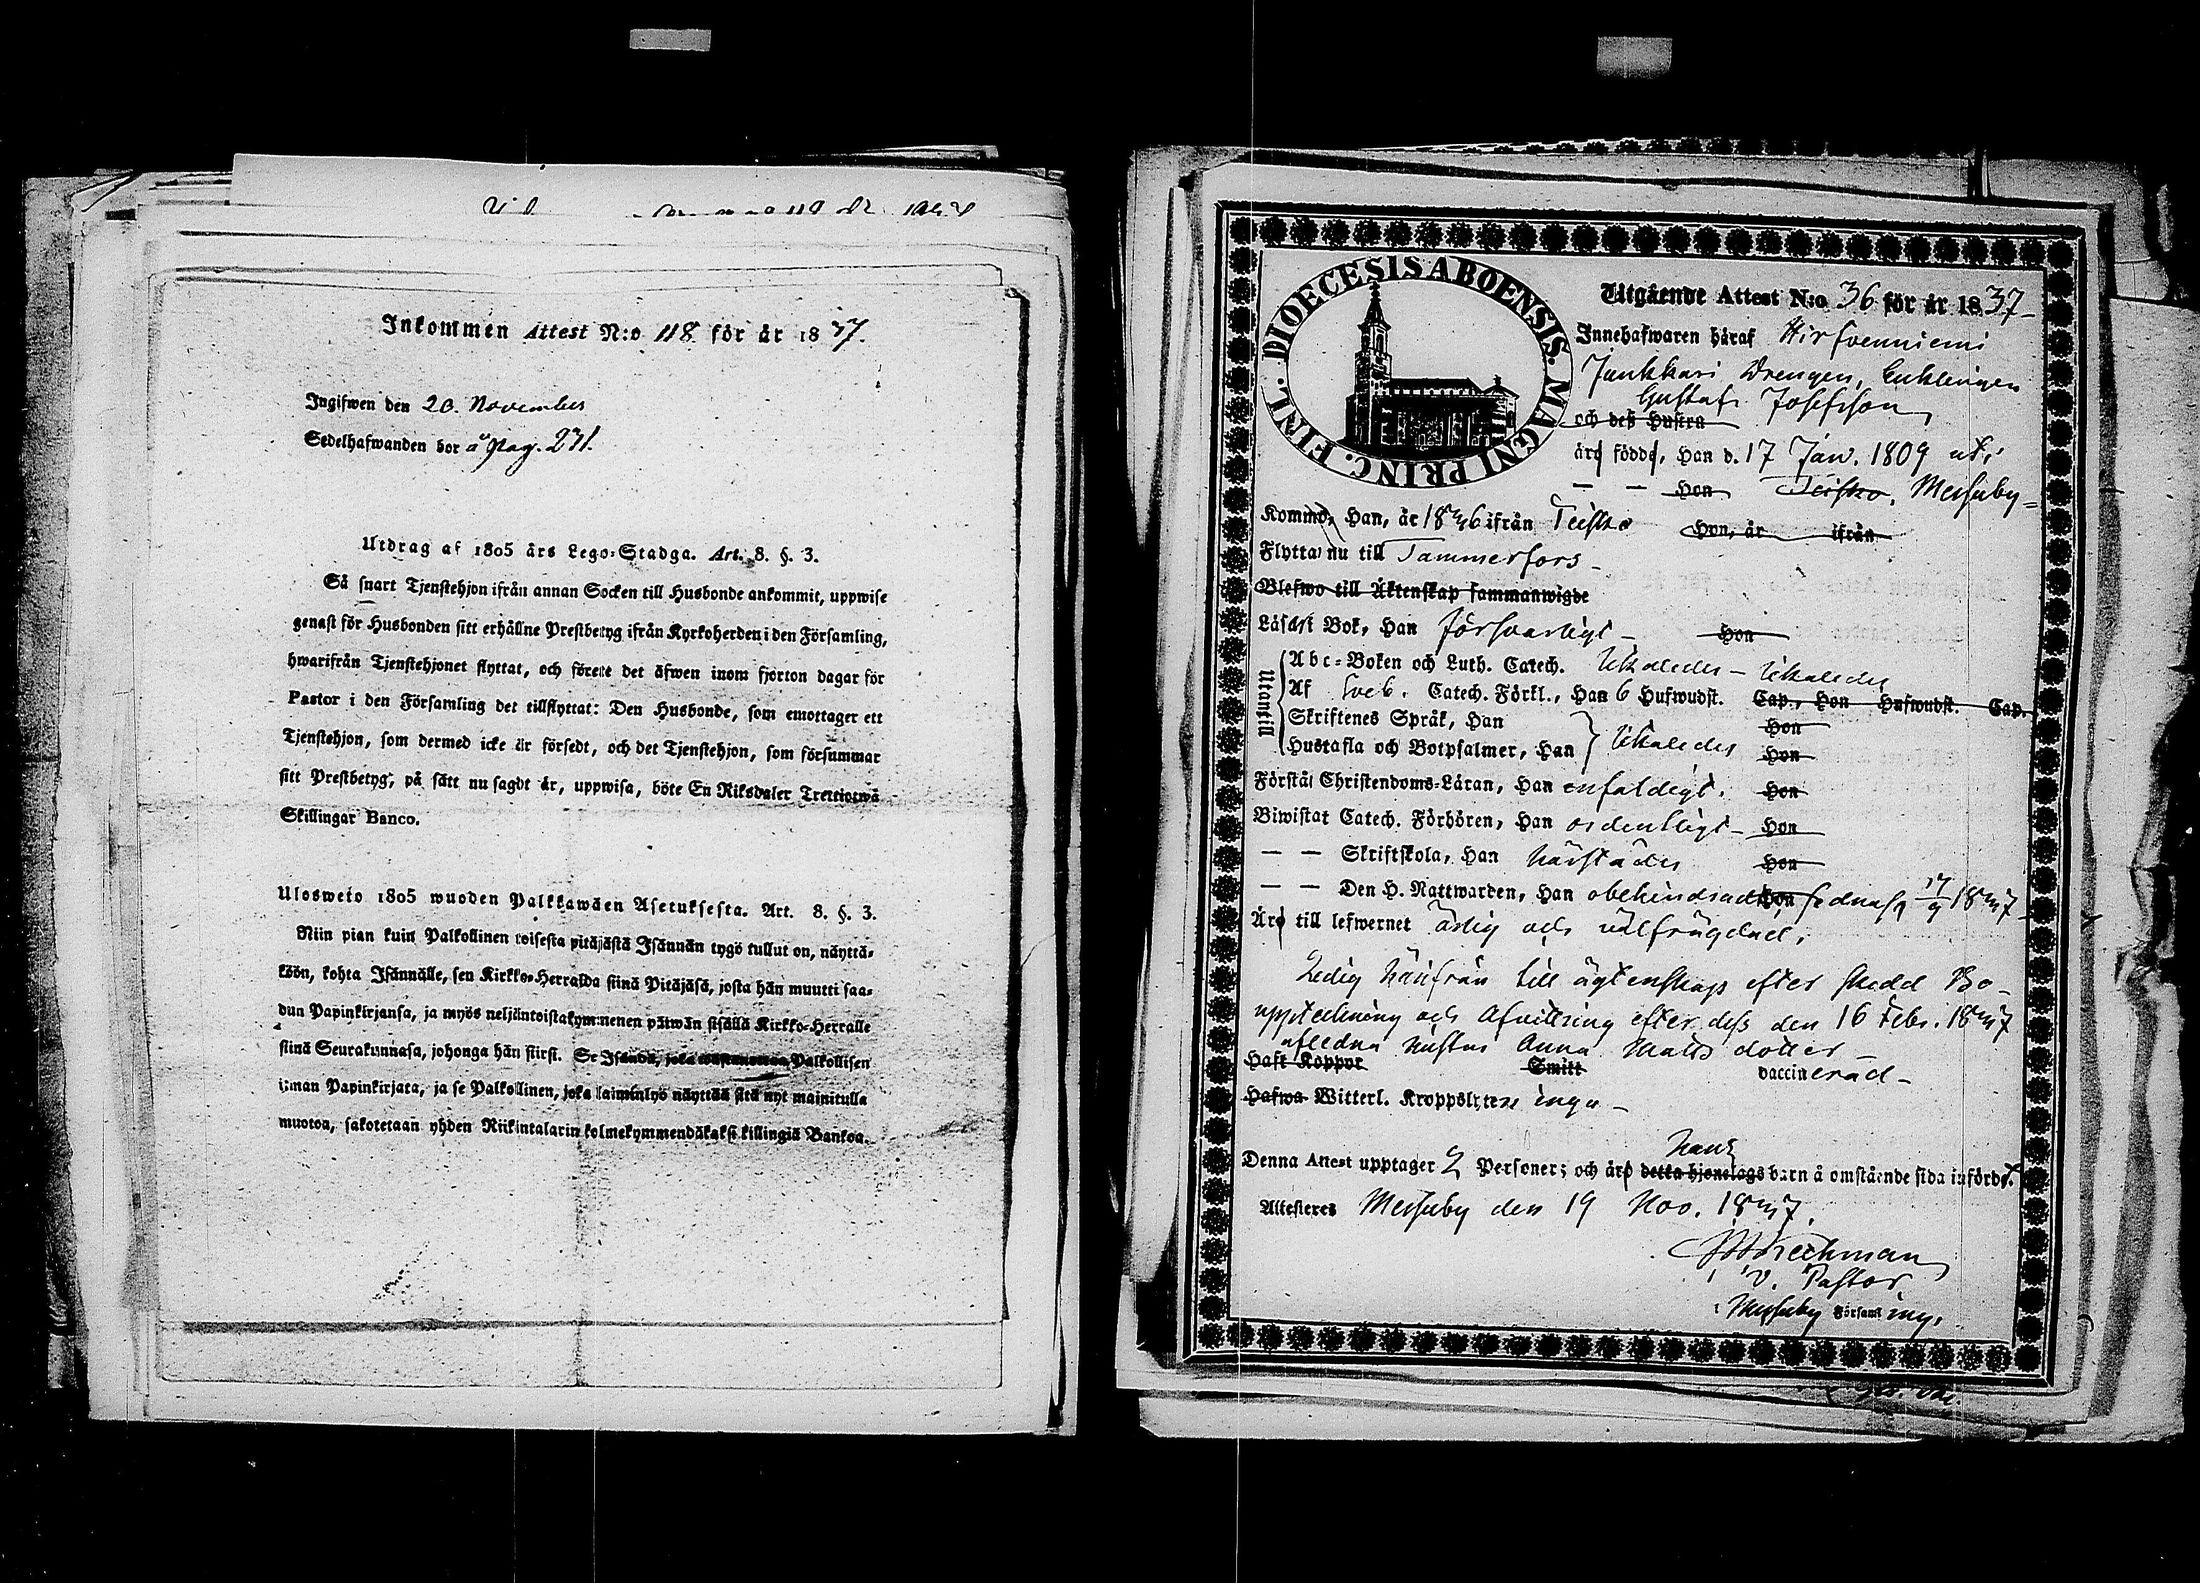 Inkommen Attest N:o 118 för år 1837.
Ingifwen den 20. November
Sedelhafwanden bor å Pag. 271.
Utdrag af 1805 års Lego-Stadga. Art. 8. §. 3.
Så snart Tjenstehjon ifrån annan Socken till Husbonde ankommit, uppwise
genast för Husbonden sitt erhållne Prestbetyg ifrån Kyrkoherden i den Församling,
hwarifrån Tjenstehjonet flyttat, och förete det äfwen inom fjorton dagar för
Pastor i den Församling det tillflyttat: Den Husbonde, som emottager ett
Tjenstehjon, som dermed icke är försedt, och det Tjenstehjon, som försummar
sitt Prestbetyg, på sätt nu sagdt är, uppwisa, böte En Riksdaler Trettiotwå
Skillingar Banco.
Ulosweto 1805 wuoden Palkkawäen Asetuksesta. Art. 8. §. 3.
Niin pian kuin Palkollinen toisesta pitäjästä Isännän tygö tullut on, näyttä-
köön, kohta Isännälle, sen Kirkko-Herralda siinä Pitäjäsä, josta hän muutti saa-
dun Papinkirjansa, ja myös neljäntoistakymmenen päiwän sisällä Kirkko-Herralle
siinä Seurakunnasa, johonga hän siirsi. Se Isändä, joka Palkollisen
ilman Papinkirjata, ja se Palkollinen, joka laiminlyö näyttää sitä nyt mainitulla
muotoa, sakotetaan yhden Riikintalarin kolmekymmendäkaksi killingiä Bankoa.
DIOECESIS ABOENSIS. MAGNI PRINC. FINL.
Utgående Attest N:o 36 för år 1837
Innehafwaren häraf Hirfvenniemi
Junkkari Drengen, Enklingen
Gustaf Josefsson
och deß Hustru
äro födde, Han d. 17 Jan. 1809 uti
— — Hon Teisko, Messuby
Kommo, Han, år 1836 ifrån Teisko Hon, år ifrån
Flytta nu till Tammerfors
Blefwo till Äktenskap sammanwigde
Läsa i Bok, Han försvarligt Hon
Utantill
Abc-Boken och Luth. Catech. Utaledes Utaledes
Af Sveb. Catech. Förkl., Han 6 Hufwudst. Cap., Hon Hufwudst. Cap.
Skriftenes Språk, Han Hon
Hustafla och Botpsalmer, Han Hon
Förstå Christendoms-Läran, Han enfaldigt. Hon
Biwistat Catech. Förhören, Han ordentligt Hon
— — Skriftskola, Han härstädes Hon
— — Den H. Nattwarden, Han obehindrad, Hon sednast 17/9 1837
Äro till lefwernet ärlig och välfrägdad,
Ledig härifrån till ägtenskap efter skedd Bo-
uppteckning och Afvittring efter dess den 16 Febr. 1837
afledna hustru Anna Matts dotter
Haft Koppor Smitt vaccinerad
Hafwa Witterl. Kroppslyten inga
hans
Denna Attest upptager 2 Personer; och äro detta hjonelags barn å omstående sida införde.
Attesteres Messuby den 19 Nov. 1837.
v. Pastor
Messuby Församling.